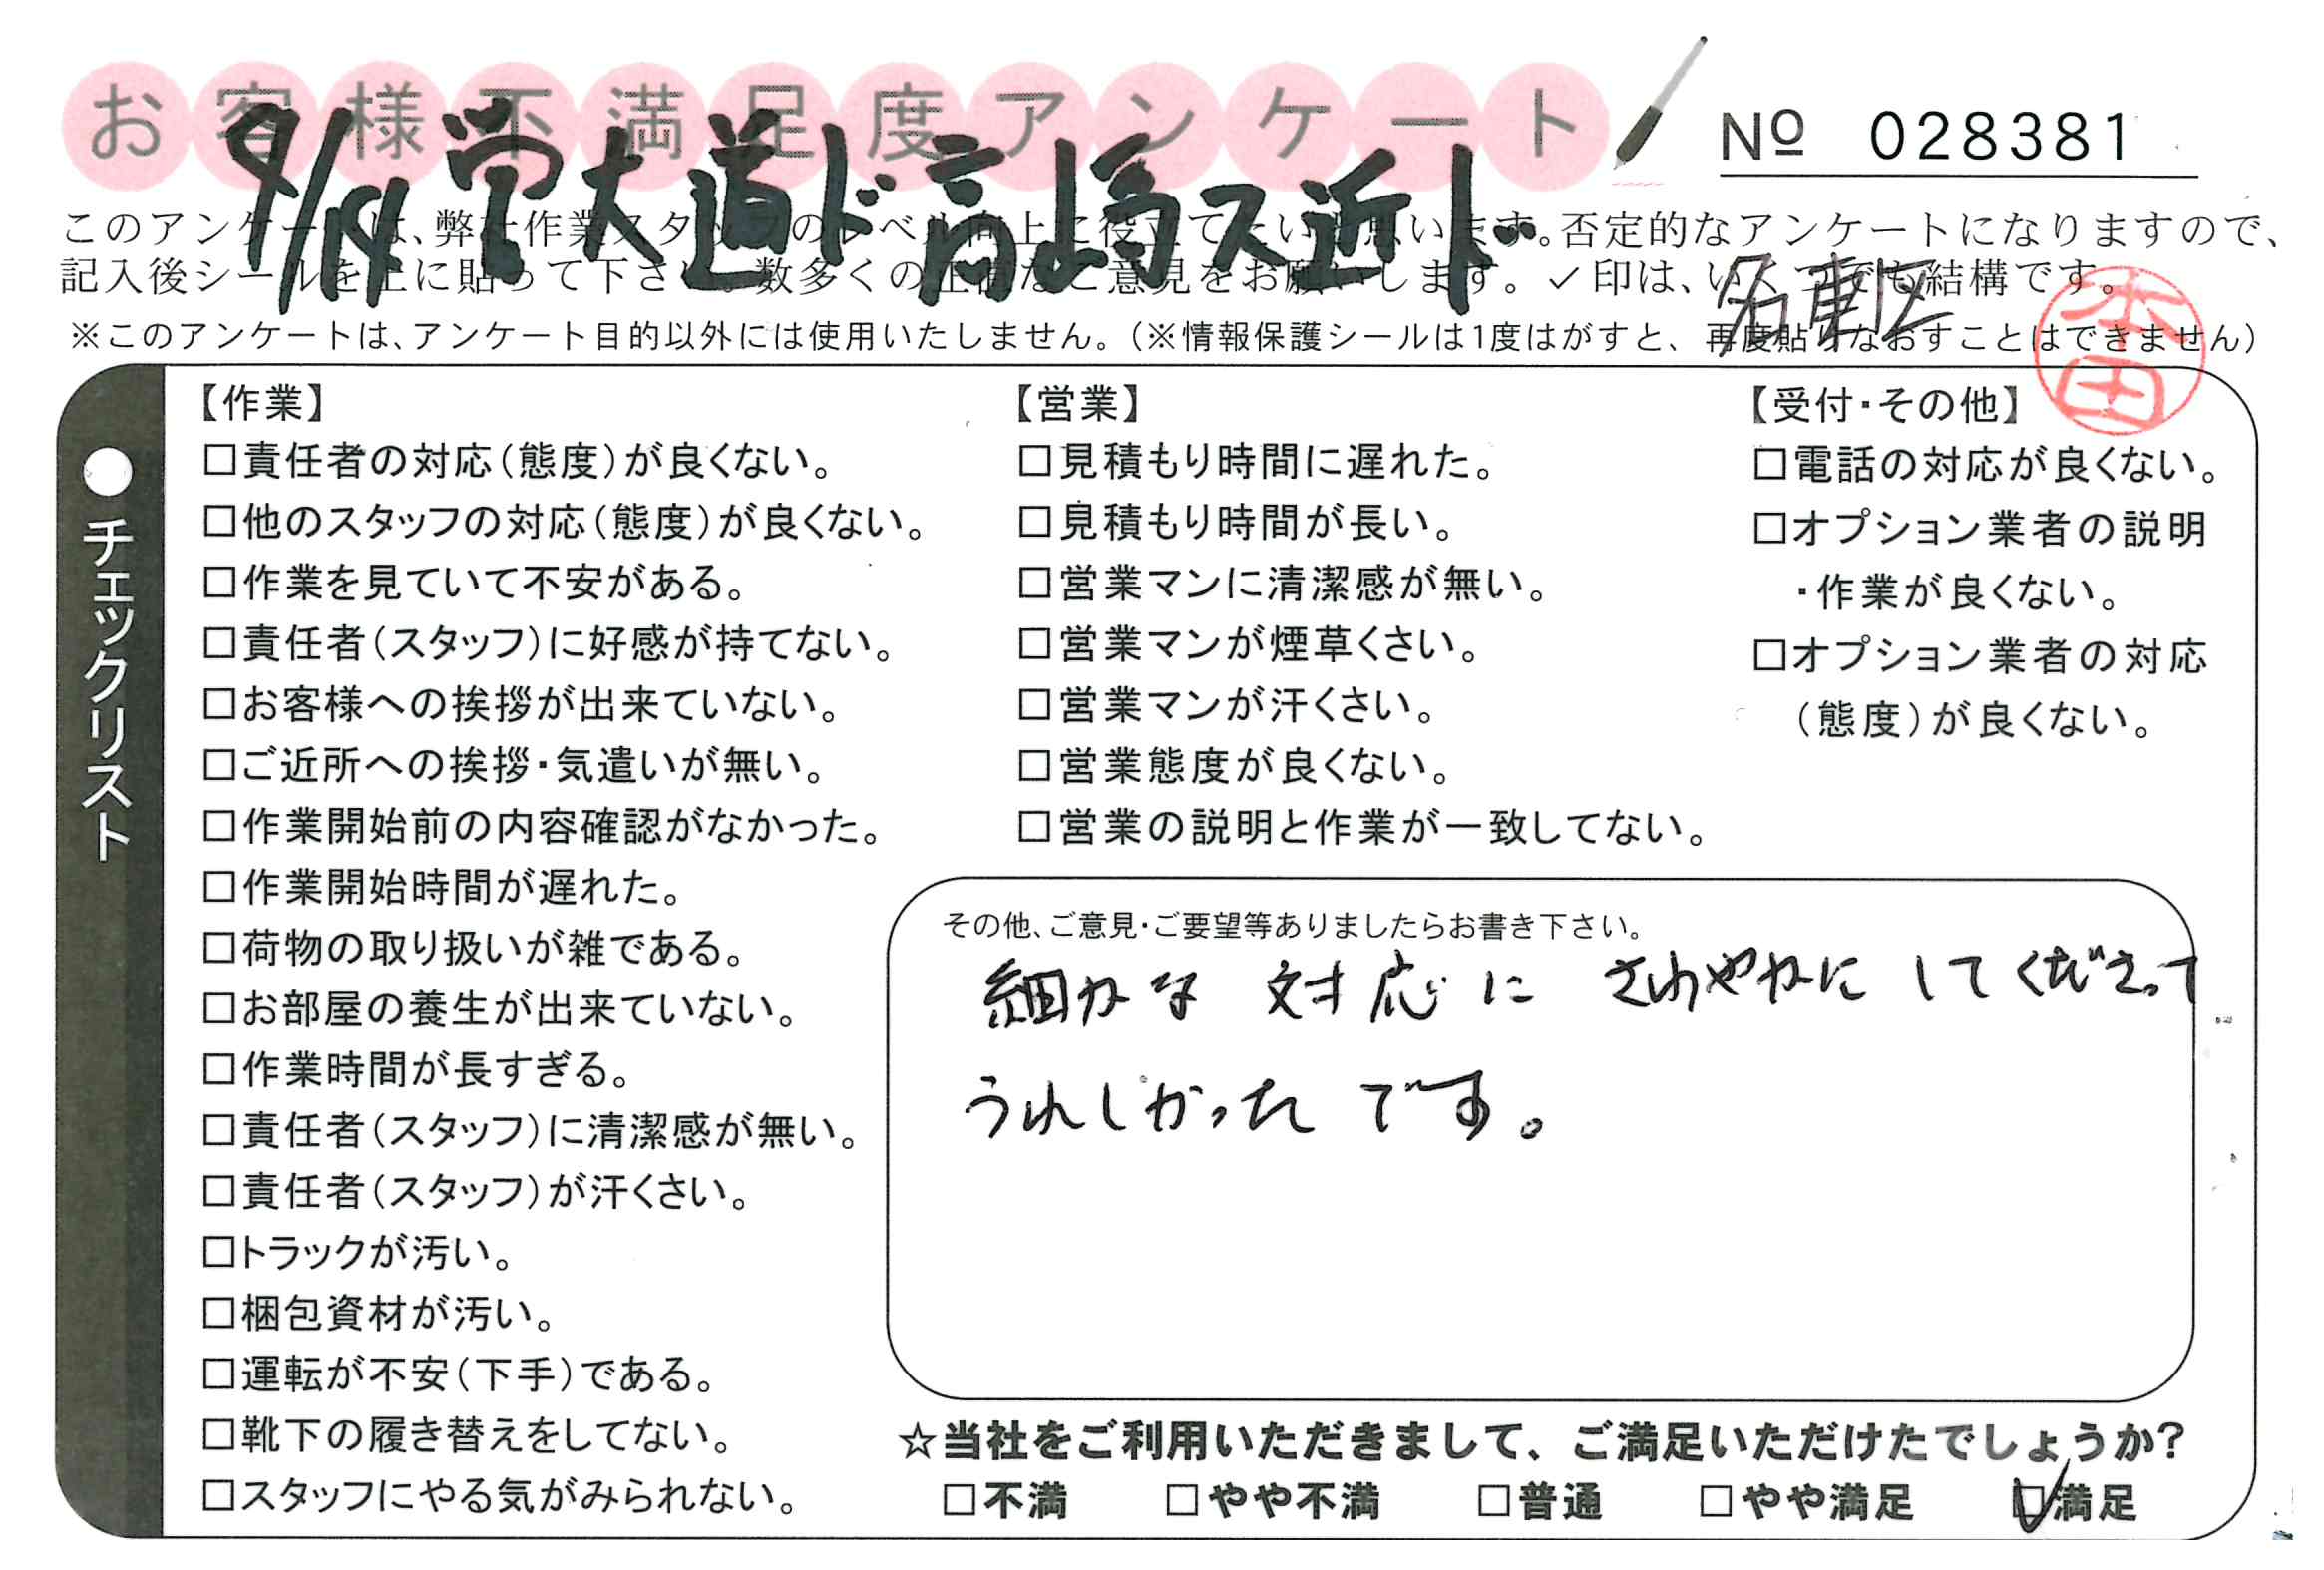 お客様不満足度アンケート
№ 028381
9/14 営大道ド高嶋ス近ド
このアンケートは、弊社作業スタッフのレベル向上に役立てたいと思います。否定的なアンケートになりますので、
記入後シールを上に貼って下さい。数多くの正直なご意見をお願いします。✓印は、いくつでも結構です。
名東区
本田
※このアンケートは、アンケート目的以外には使用いたしません。(※情報保護シールは1度はがすと、再度貼りなおすことはできません)
●チェックリスト
【作業】
□責任者の対応(態度)が良くない。
□他のスタッフの対応(態度)が良くない。
□作業を見ていて不安がある。
□責任者(スタッフ)に好感が持てない。
□お客様への挨拶が出来ていない。
□ご近所への挨拶・気遣いが無い。
□作業開始前の内容確認がなかった。
□作業開始時間が遅れた。
□荷物の取り扱いが雑である。
□お部屋の養生が出来ていない。
□作業時間が長すぎる。
□責任者(スタッフ)に清潔感が無い。
□責任者(スタッフ)が汗くさい。
□トラックが汚い。
□梱包資材が汚い。
□運転が不安(下手)である。
□靴下の履き替えをしてない。
□スタッフにやる気がみられない。
【営業】
□見積もり時間に遅れた。
□見積もり時間が長い。
□営業マンに清潔感が無い。
□営業マンが煙草くさい。
□営業マンが汗くさい。
□営業態度が良くない。
□営業の説明と作業が一致してない。
【受付・その他】
□電話の対応が良くない。
□オプション業者の説明
・作業が良くない。
□オプション業者の対応
(態度)が良くない。
その他、ご意見・ご要望等ありましたらお書き下さい。
細かな 対応に さわやかに してくださって
うれしかった です。
☆当社をご利用いただきまして、ご満足いただけたでしょうか?
□不満 □やや不満 □普通 □やや満足 ☑満足